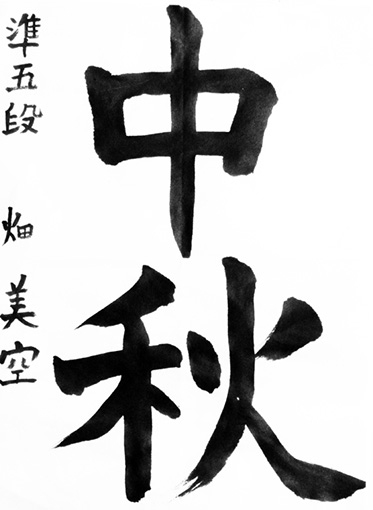 中秋
準五段 畑 美空